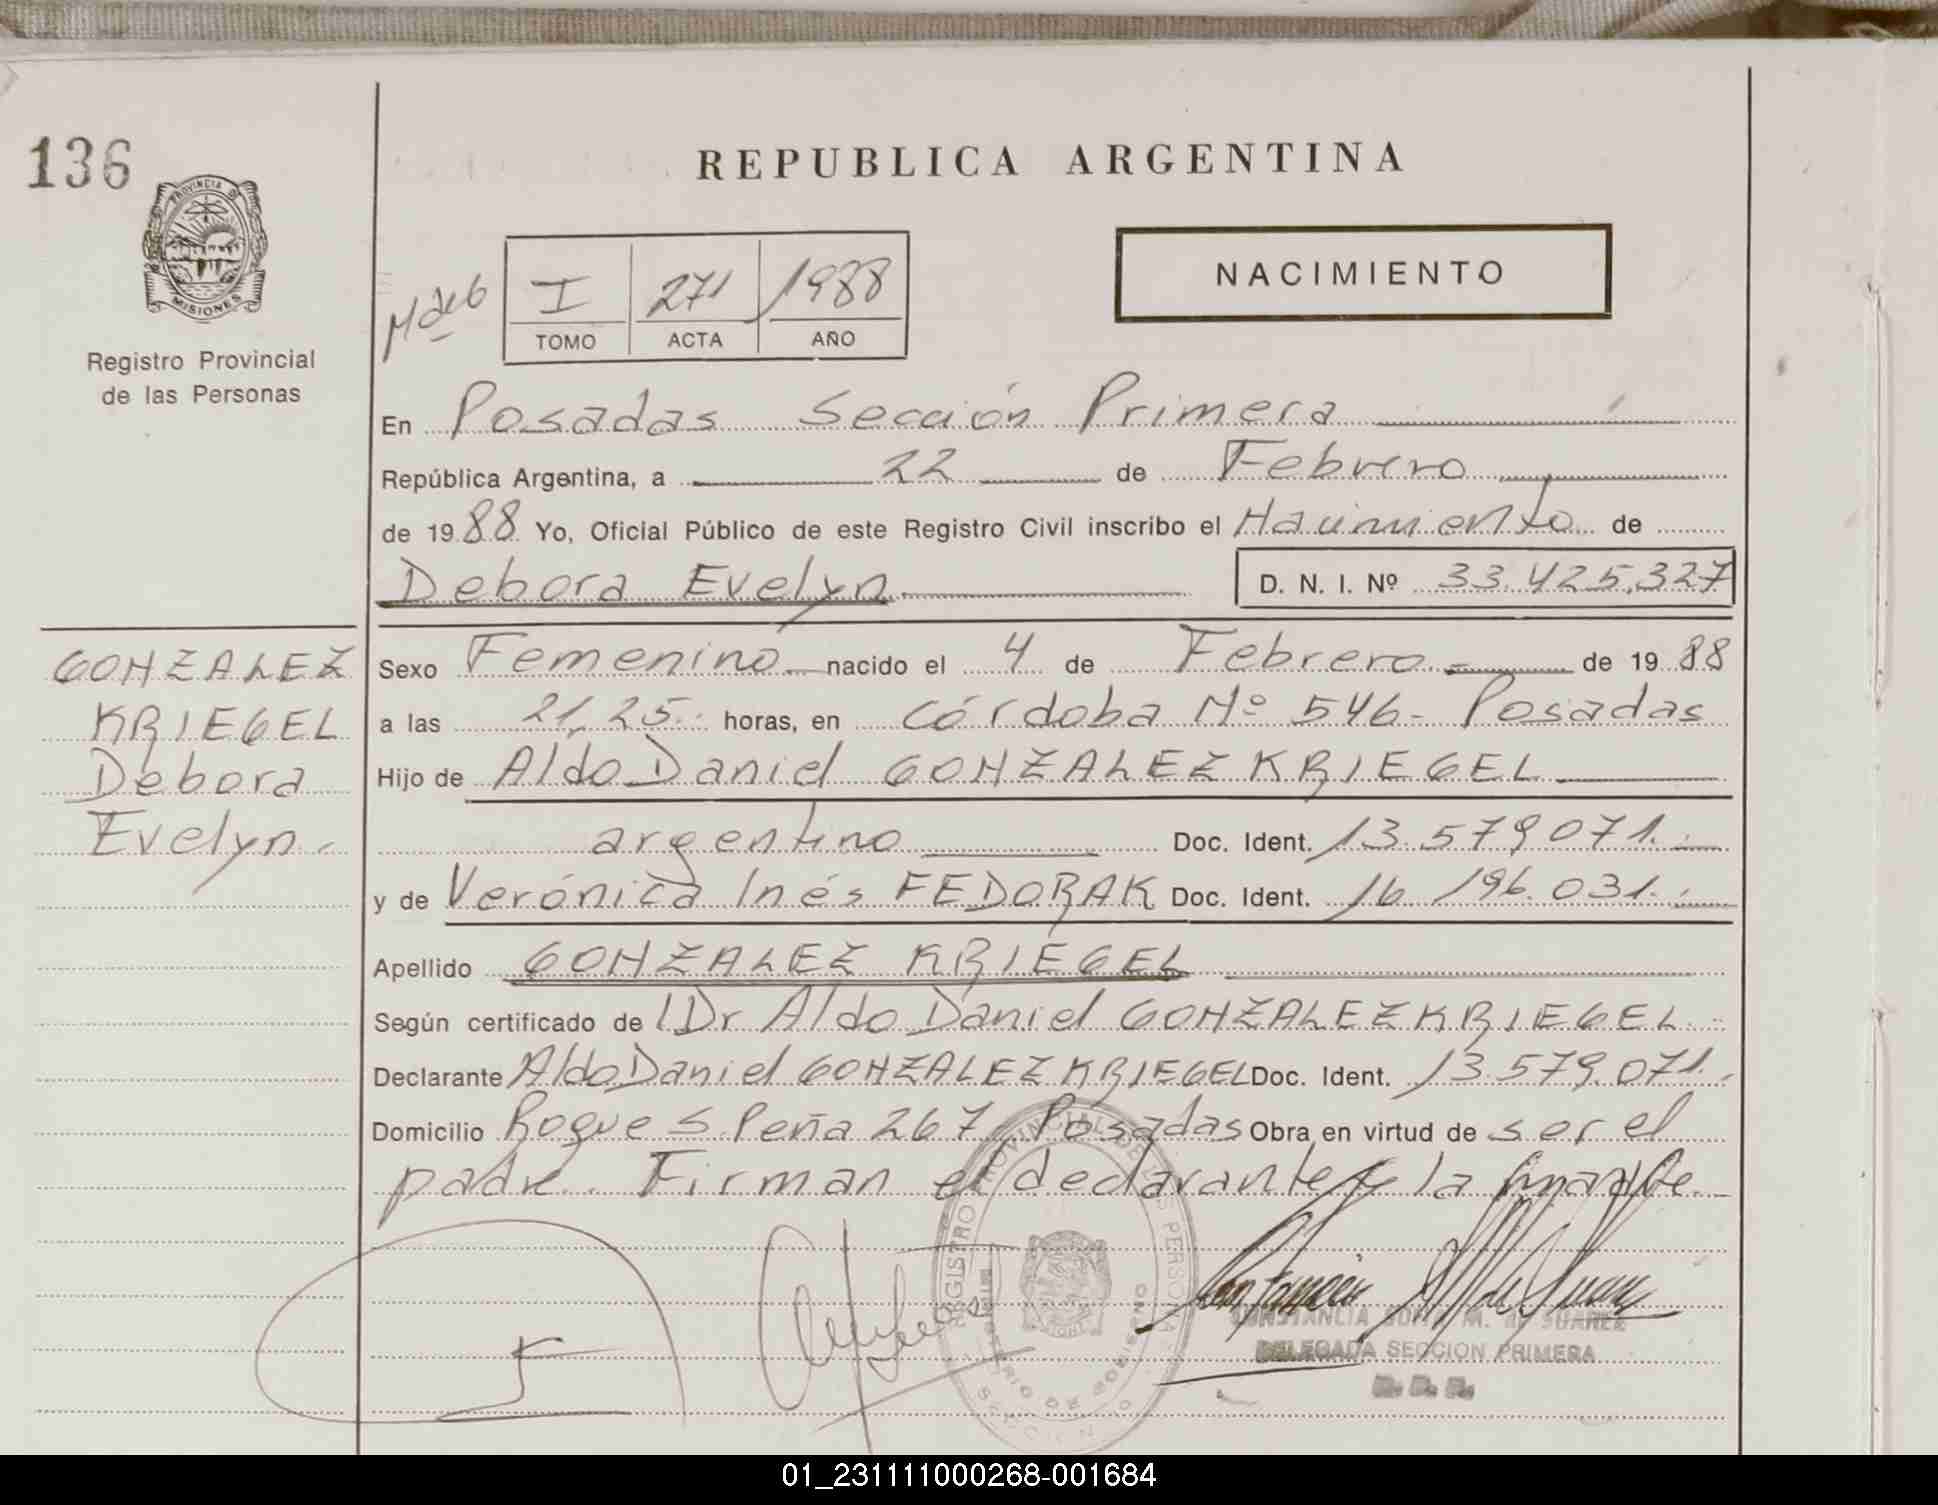 136
PROVINCIA D
MISIONES
Registro Provincial
de las Personas
REPUBLICA ARGENTINA
NACIMIENTO
I 271 1988
TOMO ACTA AÑO
En Posadas Sección Primera
República Argentina, a 22 de Febrero
de 1988 Yo, Oficial Público de este Registro Civil inscribo el Nacimiento de
Debora Evelyn D. N. I. Nº 33.425.327
GONZALEZ
KRIEGEL
Debora
Evelyn.
Sexo Femenino nacido el 4 de Febrero de 1988
a las 21,25 horas, en Córdoba Nº 546 - Posadas
Hijo de Aldo Daniel GONZALEZ KRIEGEL
argentino Doc. Ident. 13.579.071.
y de Verónica Inés FEDORAK Doc. Ident. 16.196.031.
Apellido GONZALEZ KRIEGEL
Según certificado de Dr Aldo Daniel GONZALEZ KRIEGEL
Declarante Aldo Daniel GONZALEZ KRIEGEL Doc. Ident. 13.579.071.
Domicilio Roque S. Peña 267 Posadas Obra en virtud de ser el
padre. Firman el declarante y la madre
REGISTRO PROVINCIAL DE LAS PERSONAS
MINISTERIO DE GOBIERNO
CONSTANCIA M. de SUAREZ
DELEGADA SECCION PRIMERA
01_231111000268-001684